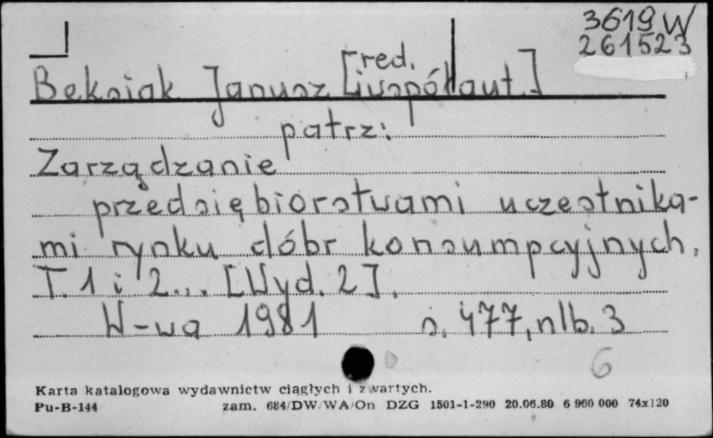 3619 W
261523
Beksiak Janusz [red. i współaut.]
patrz:
Zarządzanie
przedsiębiorstwami uczestnika-
mi rynku dóbr konsumpcyjnych.
T. 1 i 2... [Wyd. 2].
W-wa 1981 s. 477, nlb. 3
6
Karta katalogowa wydawnictw ciągłych i zwartych.
Pu-B-144 zam. 684/DW/WA/On DZG 1501-1-290 20.06.80 6 960 000 74x120